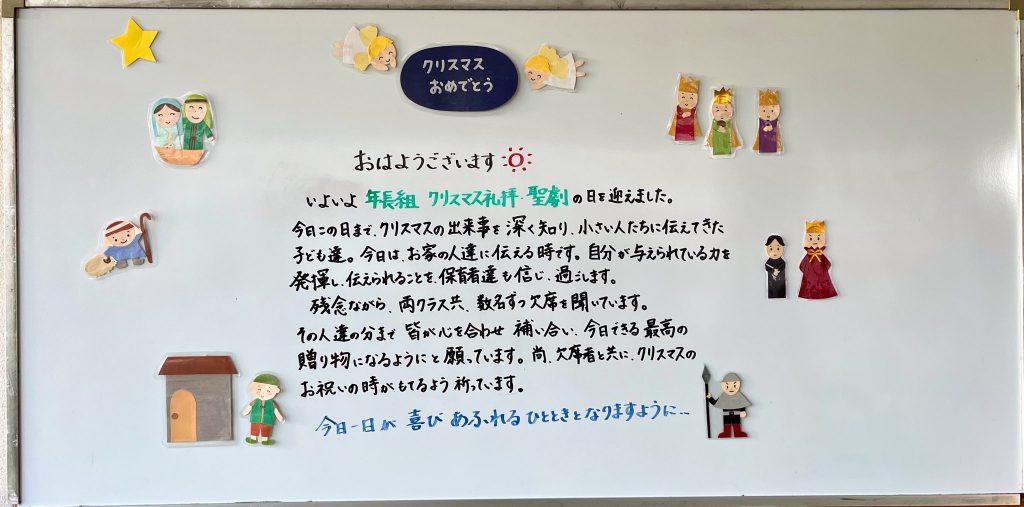 クリスマス
おめでとう
おはようございます
いよいよ 年長組 クリスマス礼拝・聖劇 の日を迎えました。
今日この日まで、クリスマスの出来事を深く知り、小さい人たちに伝えてきた
子ども達。今日は、お家の人達に伝える時です。自分が与えられている力を
発揮し、伝えられることを、保育者達も信じ、過ごします。
残念ながら、両クラス共、数名ずつ欠席を聞いています。
その人達の分まで 皆が心を合わせ 補い合い、今日できる最高の
贈り物になるようにと願っています。尚、欠席者と共に、クリスマスの
お祝いの時がもてるよう祈っています。
今日一日が 喜び あふれる ひとときとなりますように…